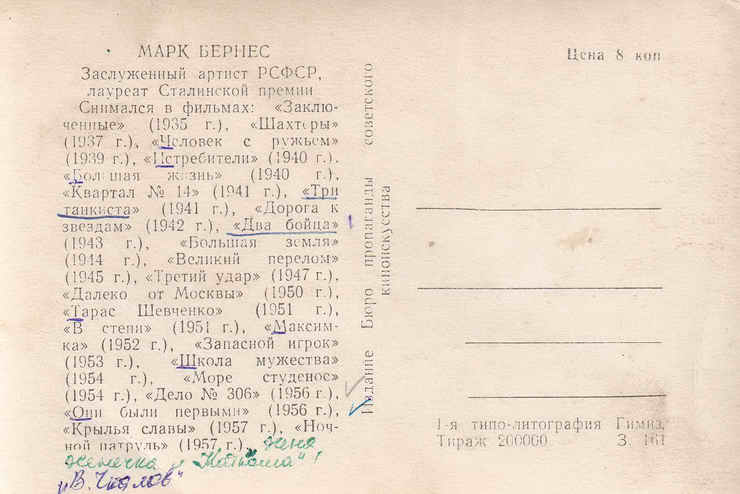 МАРК БЕРНЕС
Заслуженный артист РСФСР,
лауреат Сталинской премии
Снимался в фильмах: «Заклю-
ченные» (1935 г.), «Шахтеры»
(1937 г.), «Человек с ружьем»
(1939 г., «Истребители» (1940 г.).
«Большая жизнь» (1940 г.),
«Квартал № 14» (1941 г.), «Три
танкиста» (1941 г.), «Дорога к
звездам» (1942 г.), «Два бойца»
(1943 г.), «Большая земля»
(1944 г.), «Великий перелом»
(1945 г.), «Третий удар» (1947 г.),
«Далеко от Москвы» (1950 г.),
«Тарас Шевченко» (1951 г.),
«В степи» (1951 г.), «Максим-
ка» (1952 г.), «Запасной игрок»
(1953 г.), «Школа мужества»
(1954 г.), «Море студеное»
(1954 г.), «Дело № 306» (1956 г.),
«Они были первыми» (1956 г.),
«Крылья славы» (1957 г.), «Ноч-
ной патруль» (1957 г.), Женя
Женечка и "Катюша"!
"В. Чкалов"
Издание Бюро пропаганды советского
киноискусства
Цена 8 коп
1-я типо-литография Гимиз,
Тираж 200000 З. 161